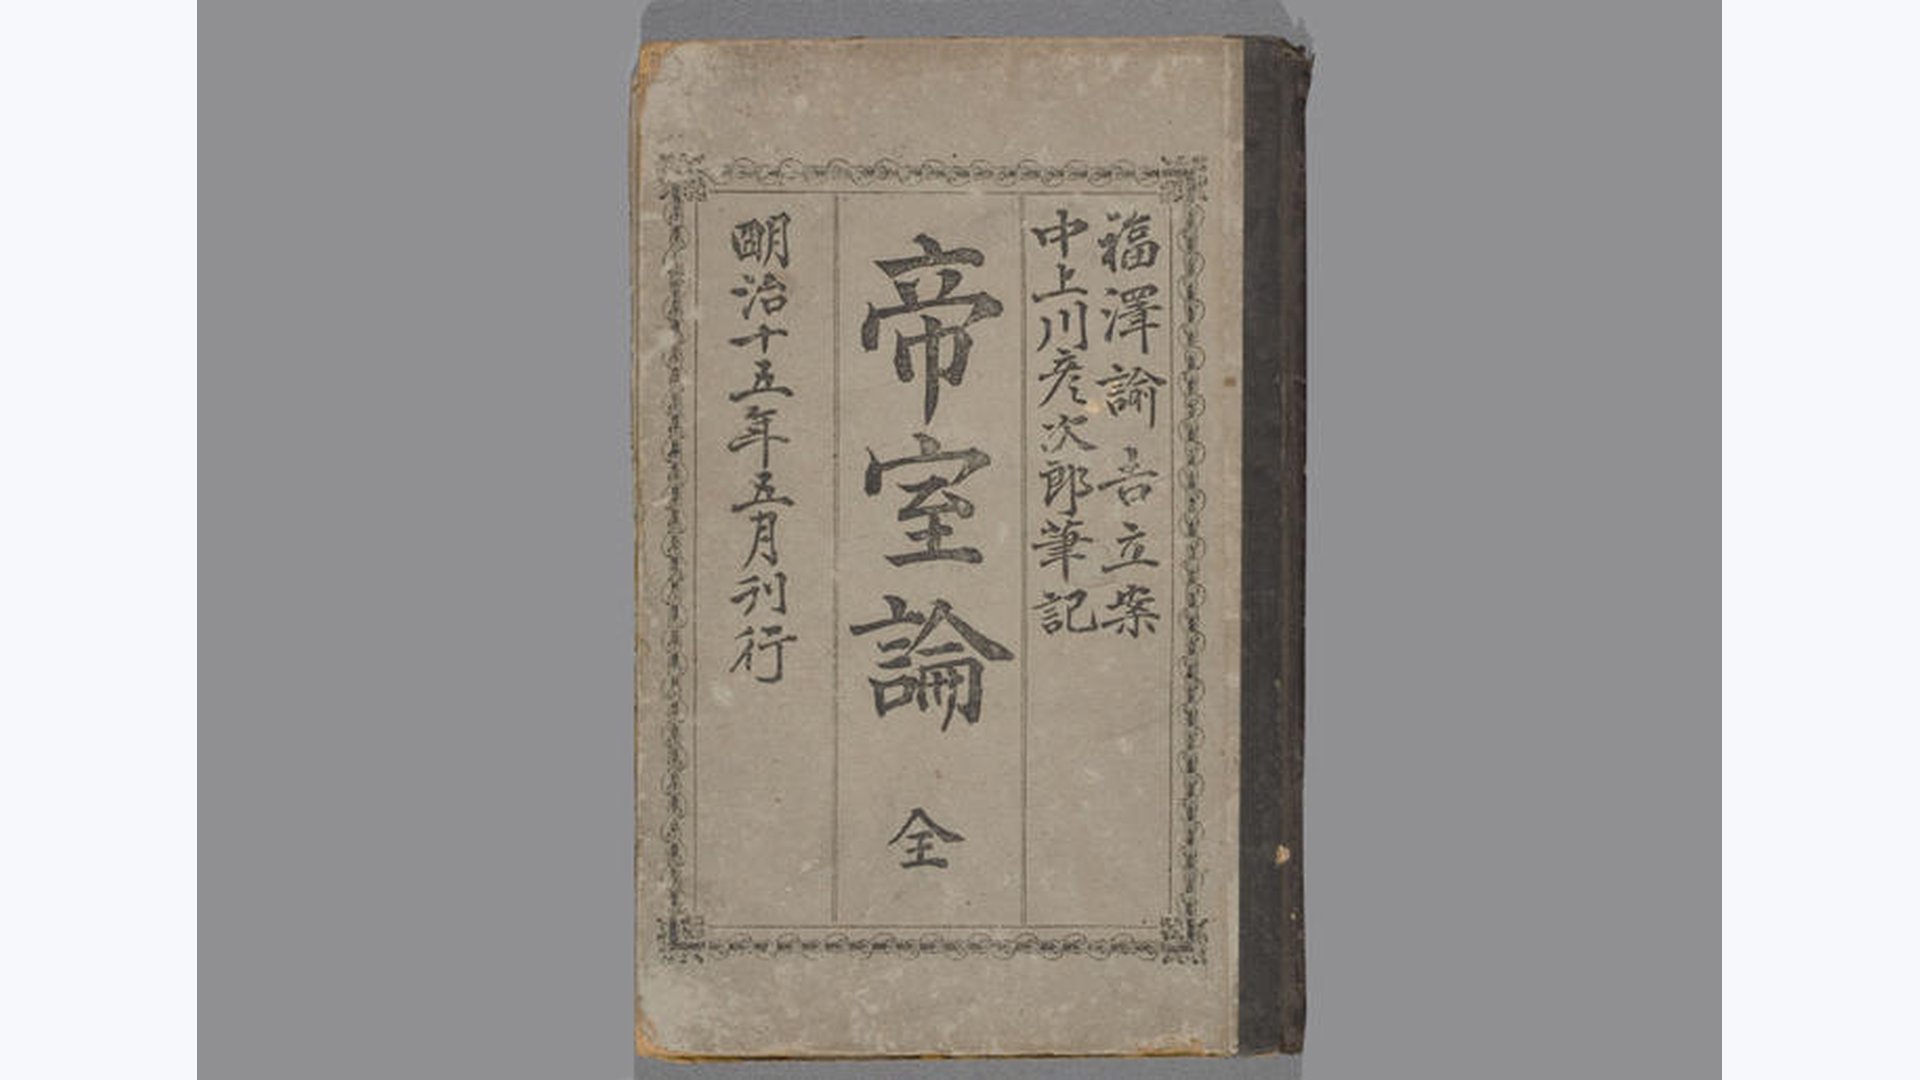 福澤諭吉立案
中上川彦次郎筆記
帝室論 全
明治十五年五月刊行